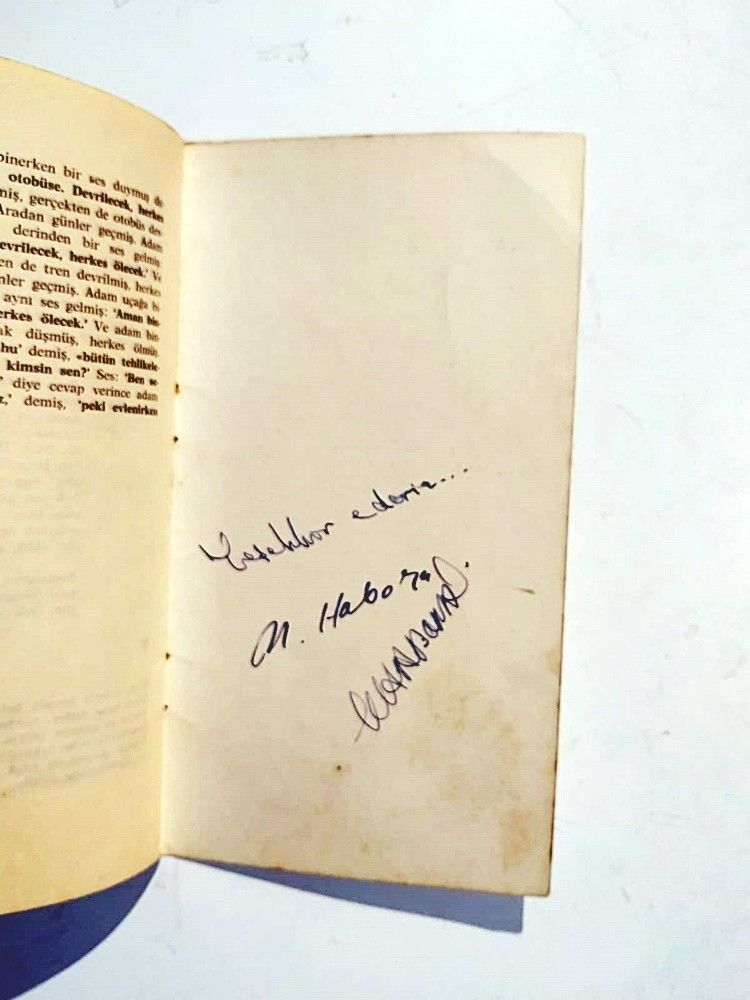 binerken bir ses duymuş
otobüse. Devrilecek, herkes
miş, gerçekten de otobüs dev
Aradan günler geçmiş. Adam
derinden bir ses gelmiş
evrilecek, herkes ölecek.' Ve
en de tren devrilmiş, herkes
nler geçmiş. Adam uçağa bi
aynı ses gelmiş: 'Aman bin
erkes ölecek.' Ve adam bin
ak düşmüş, herkes ölmüş
hu' demiş, «bütün tehlikele
kimsin sen?' Ses: 'Ben se
' diye cevap verince adam
z,' demiş, 'peki evlenirken
Teşekkür ederiz...
M. Habora